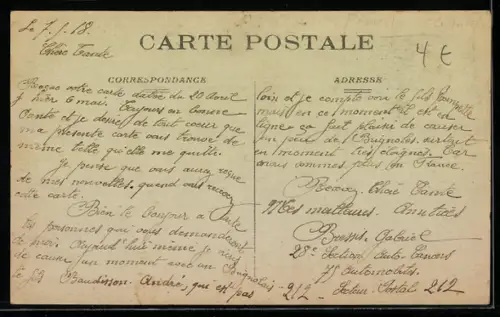 Le 7.5.18.
Chère Tante
CARTE POSTALE
4 €
CORRESPONDANCE
Reçue votre carte datée du 20 Avril
hier 6 mai. Toujours en bonne
Santé et je désire de tout coeur que
ma présente carte vous trouve de
même telle qu'elle me quitte.
Je pense que vous aurez reçue
de mes nouvelles. quand vous
cette carte.
Bien le bonjour à toute
les personnes qui vous demanderont
de moi. Aujourd'hui même je viens
de causer un moment avec un Brignolais
le fils Baudisson André, qui est pas
ADRESSE
loin et je compte voir le fils
mais en ce moment il est en
ligne ça fait plaisir de causer
un peu de Brignoles surtout
en moment éloignés. Car
nous sommes plus en
Recevez Chère Tante
Mes meilleures Amitiés
Gabriel
28e Section Auto-Canons
75 Automobiles.
212 - Secteur Postal 212